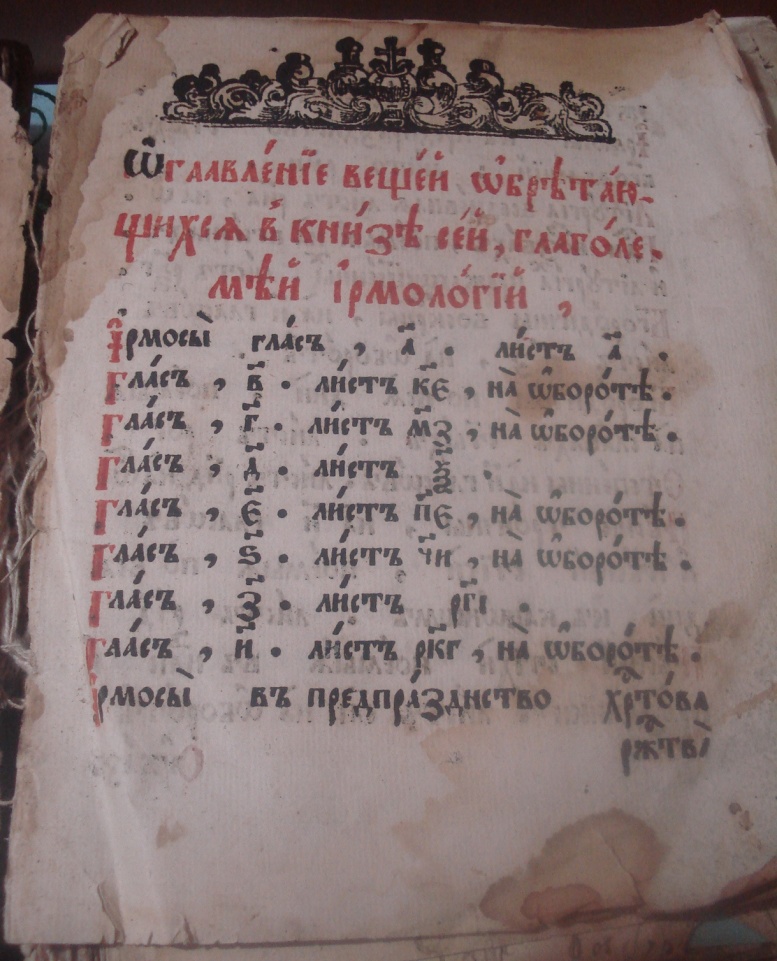 Ѡ҆главле́нїе веще́й ѡ҆брѣта́ю-
щихсѧ в̾ кни́зѣ се́й, глаго́ле-
мѣй і҆рмоло́гїй ,
І҆рмосы̀ гла́съ , а҃ . ли́стъ а҃ .
Гла́съ , в҃ . ли́стъ к҃є , на̀ ѡ҆боро́тѣ .
Гла́съ , г҃ . ли́стъ м҃з , на̀ ѡ҆боро́тѣ .
Гла́съ , д҃ . ли́стъ .
Гла́съ , є҃ . ли́стъ п҃є , на̀ ѡ҆боро́тѣ .
Гла́съ , ѕ҃ . ли́стъ ч҃и , на̀ ѡ҆боро́тѣ .
Гла́съ , з҃ . ли́стъ рг҃і .
Гла́съ , и҃ . ли́стъ рк҃г , на̀ ѡ҆боро́тѣ .
І҆рмосы̀ въ предпра́зднство хрⷭ҇то́ва
ржⷭ҇тва̀